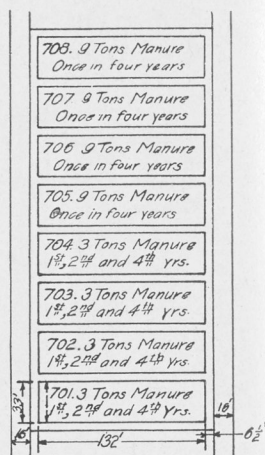 708. 9 Tons Manure
Once in four years
707 9 Tons Manure
Once in four years
706 9 Tons Manure
Once in four years
705. 9 Tons Manure
Once in four years
704. 3 Tons Manure
1st, 2nd and 4th Yrs.
703. 3 Tons Manure
1st, 2nd and 4th Yrs.
702. 3 Tons Manure
1st, 2nd and 4th Yrs.
701. 3 Tons Manure
1st, 2nd and 4th Yrs.
33'
16'
16'
132'
6½'